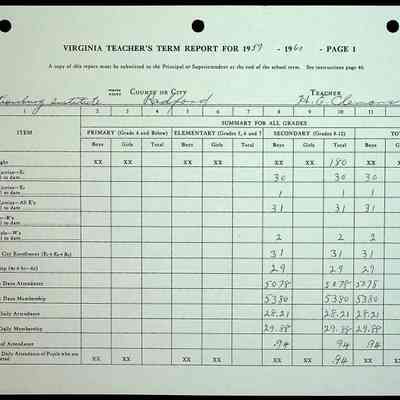 VIRGINIA TEACHER'S TERM REPORT FOR 1959 - 1960 - PAGE 1
A copy of this report must be submitted to the Principal or Superintendent at the end of the school term. See instructions page 40.
Institute COUNTY OR CITY Radford TEACHER H. C. Clemons
1 2 3 4 5 6 7 8 9 10 11
SUMMARY FOR ALL GRADES
ITEM PRIMARY (Grades 4 and Below) ELEMENTARY (Grades 5, 6 and 7) SECONDARY (Grades 8-12) TO
Boys Girls Total Boys Girls Total Boys Girls Total Boys
XX XX XX XX XX XX 180 XX
to date 30 30 30
to date 1 1 1
All E's to date 31 31 31
R's to date
W's to date 2 2 2
City Enrollment 31 31 31
29 29 29
Days Attendance 5078 5078 5078
Days Membership 5380 5380 5380
Daily Attendance 28.21 28.21 28.21
Daily Membership 29.88 29.88 29.88
of Attendance .94 .94 .94
Daily Attendance of Pupils who are XX XX XX XX XX XX .94 XX